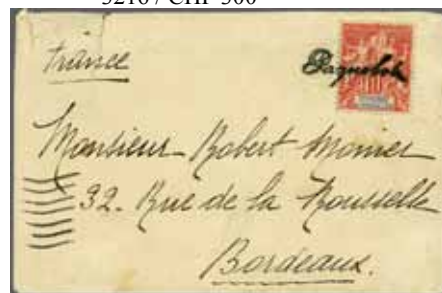 32107 CHF 300
France
Paquebot
10
Monsieur Robert Monier
32. Rue de la Rousselle
Bordeaux.